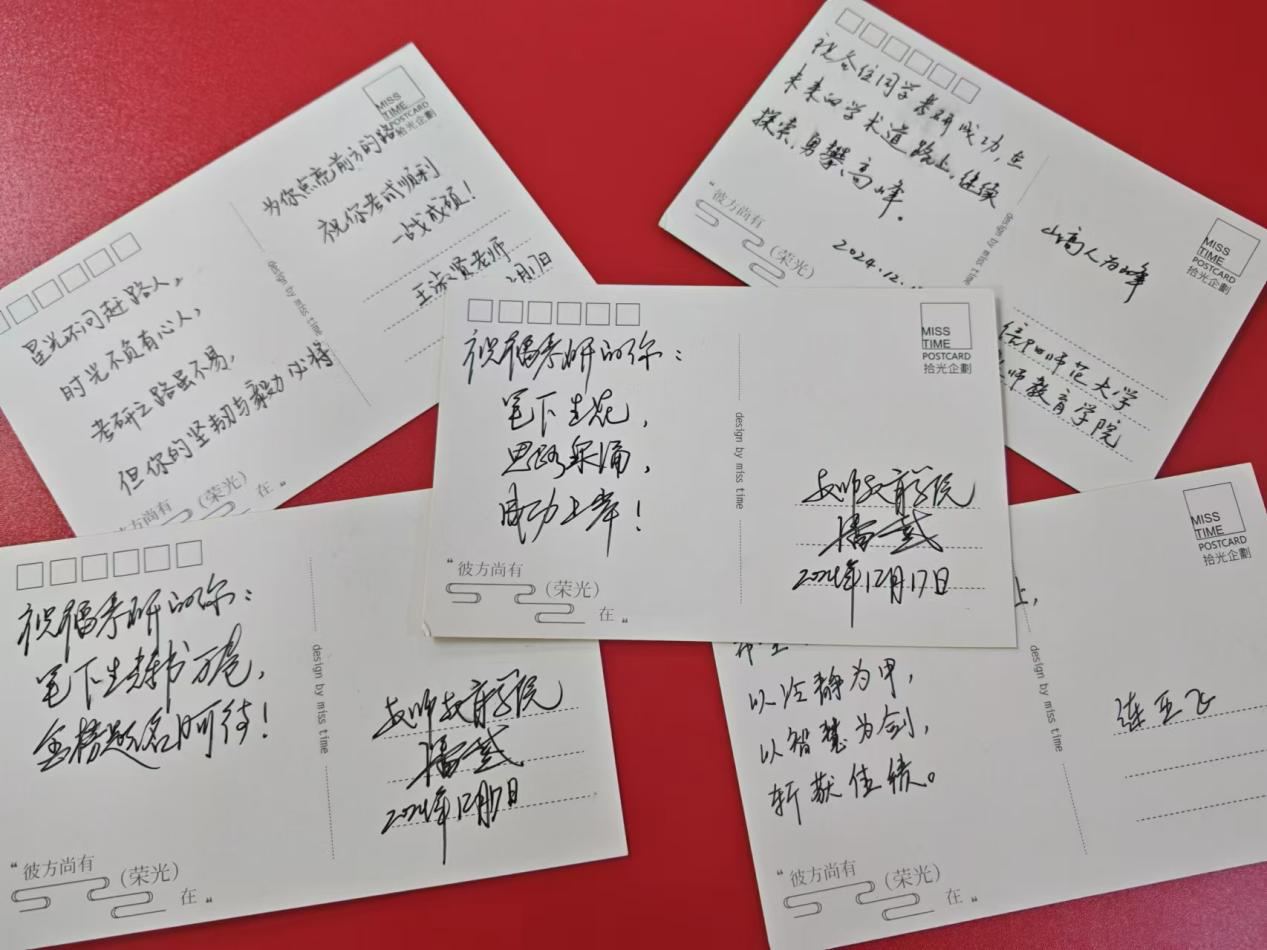 星光不问赶路人,
时光不负有心人,
考研之路虽不易,
但你的坚韧与毅力必将
为你点亮前方的路
祝你考试顺利
一战成硕!
王淑贤老师
2月17日
MISS
TIME
POSTCARD
拾光企劃
design by miss time
彼方尚有
(荣光)
在 „
祝各位同学考研成功,在
未来的学术道路上,继续
探索,勇攀高峰。
2024.12.
“彼方尚有
(荣光)
design by miss time
山高人为峰
师范大学
师教育学院
MISS
TIME
POSTCARD
拾光企劃
祝福考研的你:
笔下生花,
思路泉涌,
成功上岸!
“彼方尚有
(荣光)
在 „
design by miss time
MISS
TIME
POSTCARD
拾光企劃
教师教育学院
2024年12月17日
祝福考研的你:
笔下生辉书万卷,
金榜题名时可待!
“彼方尚有
(荣光)
在 „
design by miss time
教师教育学院
2024年12月17日
上,
以冷静为甲,
以智慧为剑,
斩获佳绩。
“彼方尚有
(荣光)
在 „
design by miss time
MISS
TIME
POSTCARD
拾光企劃
连亚飞